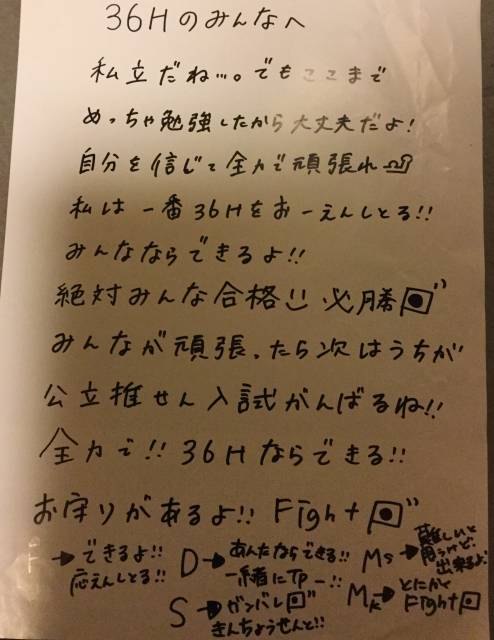 36Hのみんなへ
私立だね…。でもここまで
めっちゃ勉強したから大丈夫だよ!
自分を信じて全力で頑張れ
私は一番36Hをおーえんしとる!!
みんなならできるよ!!
絶対みんな合格 必勝
みんなが頑張ったら次はうちが
公立推せん入試がんばるね!!
全力で!!36Hならできる!!
お守りがあるよ!! Fight
F→できるよ!!
応えんしとる!!
D→あんたならできる!!
一緒にTPー!!
Ms→難しいと
思うけど、
出来るよ!
S→ガンバレ
きんちょうせんと!!
Mk→とにかく
Fight